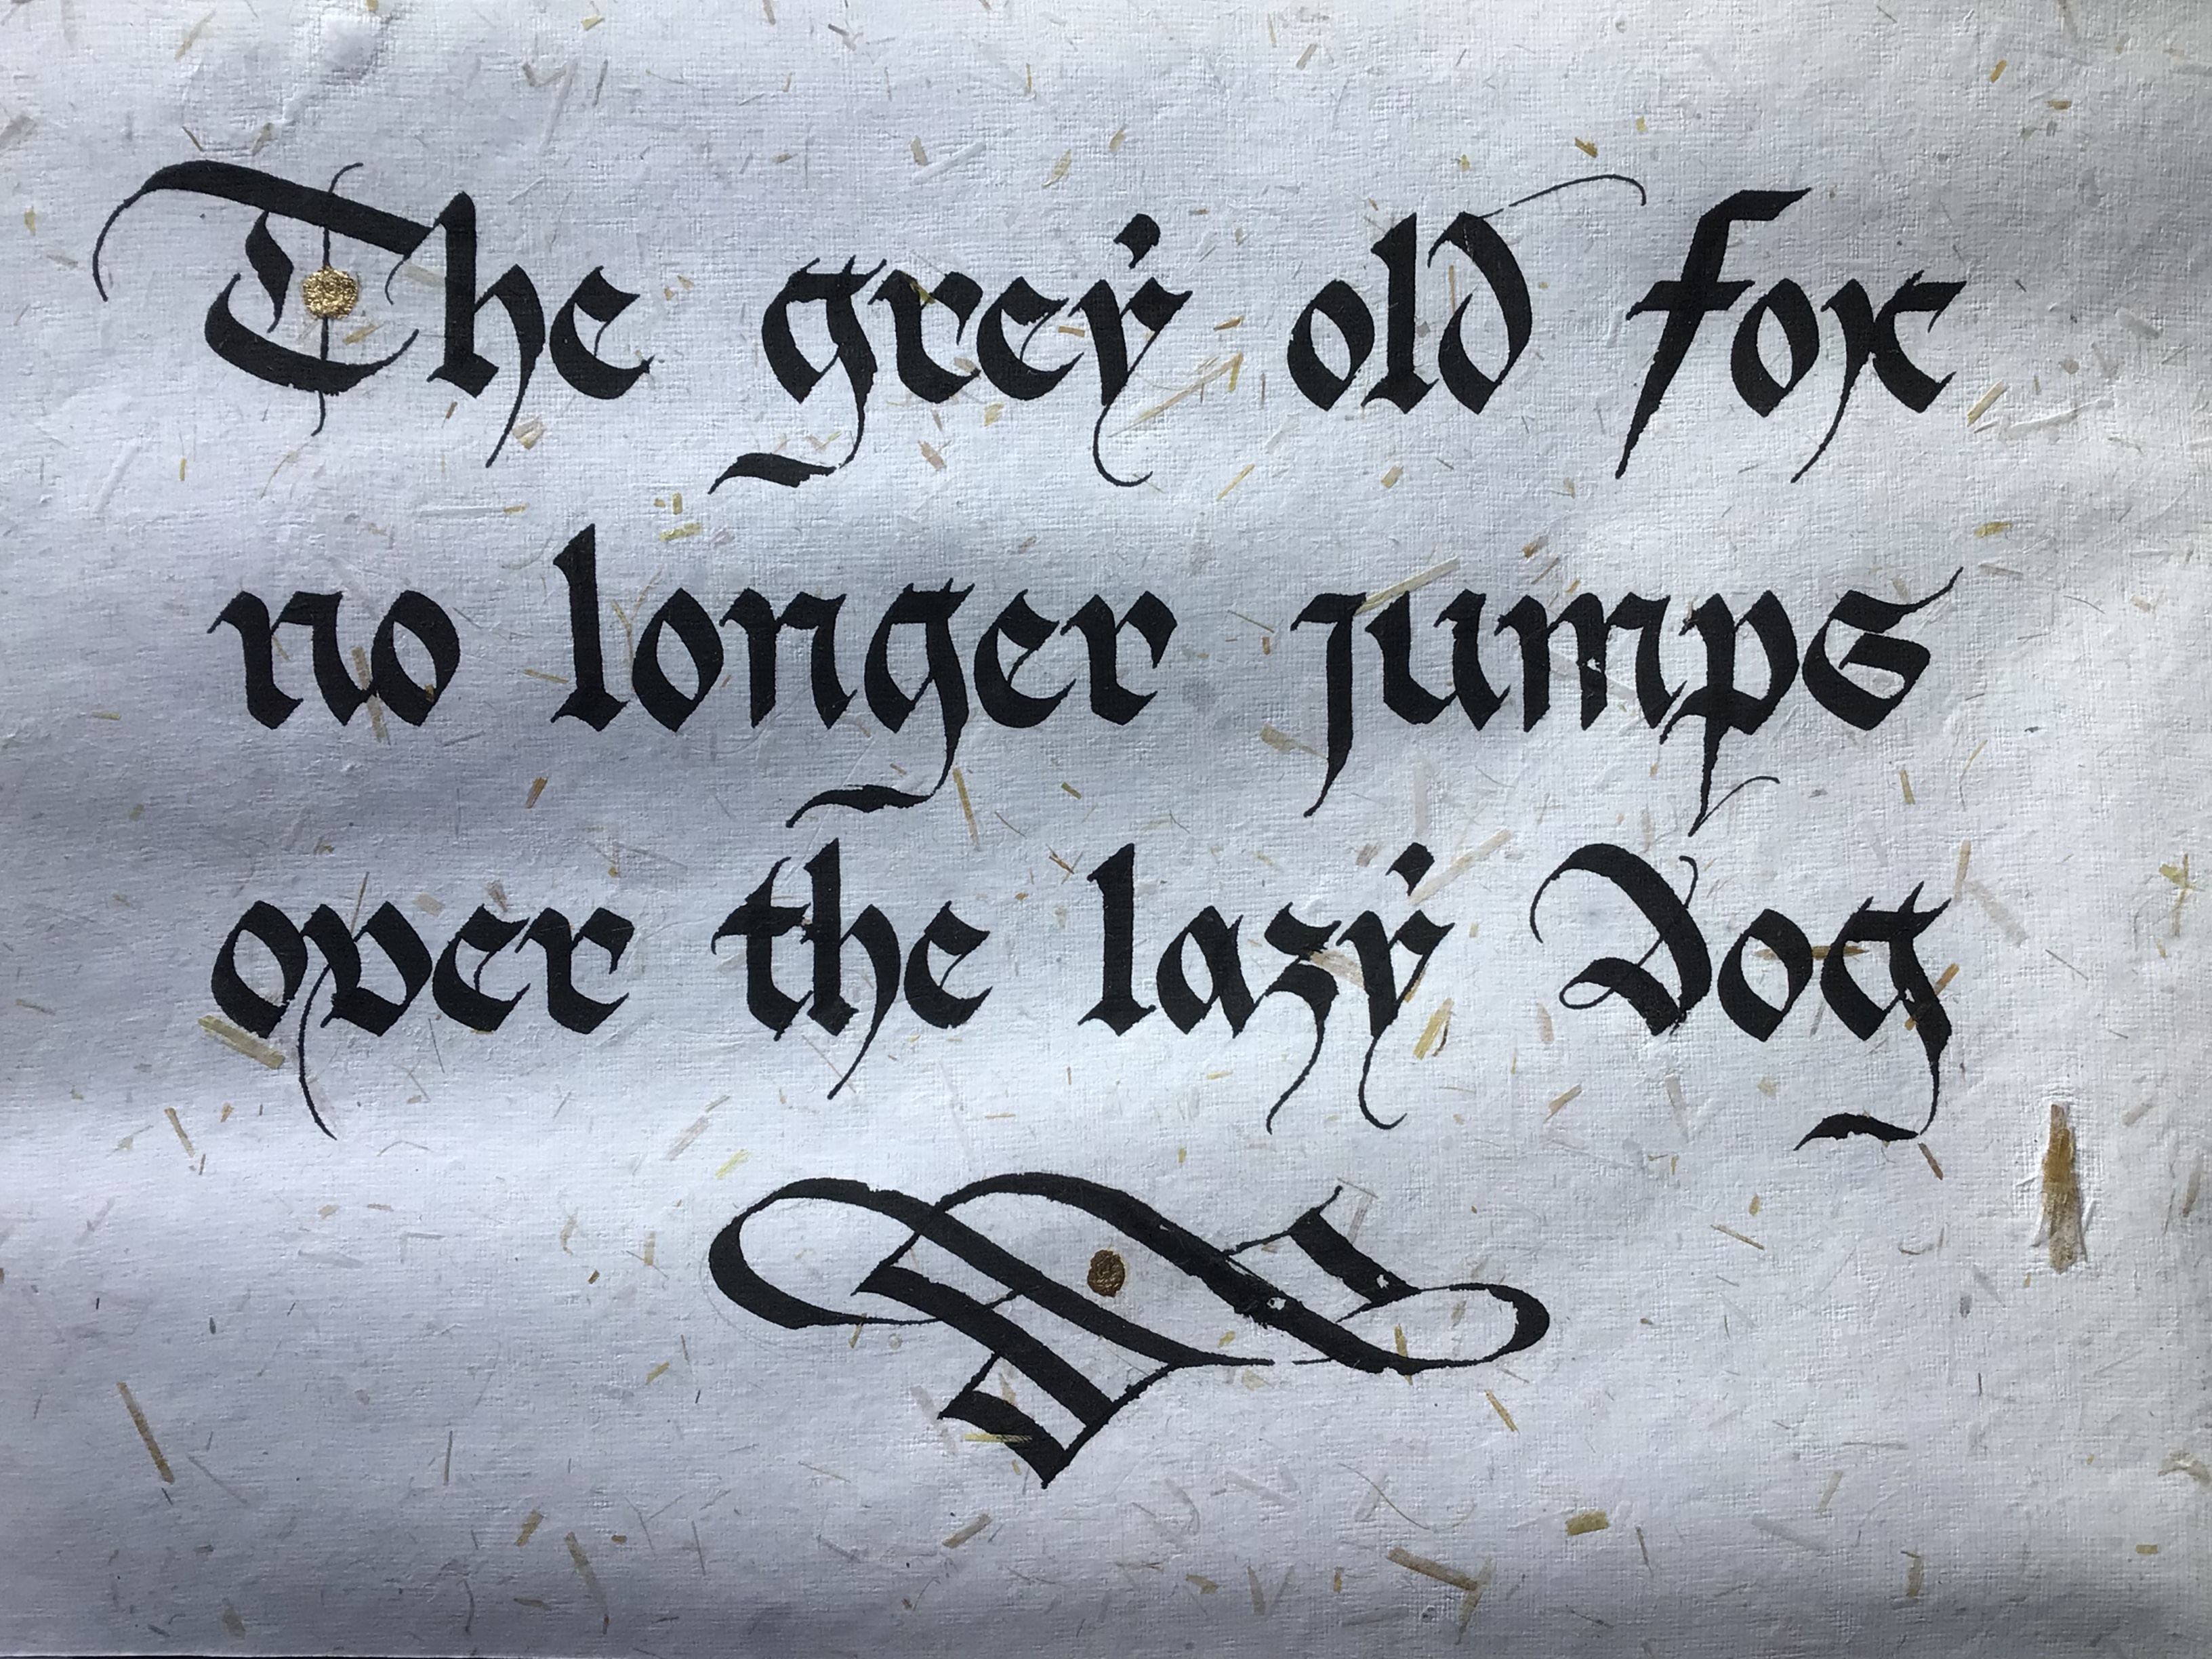 The grey old fox
no longer jumps
over the lazy Dog